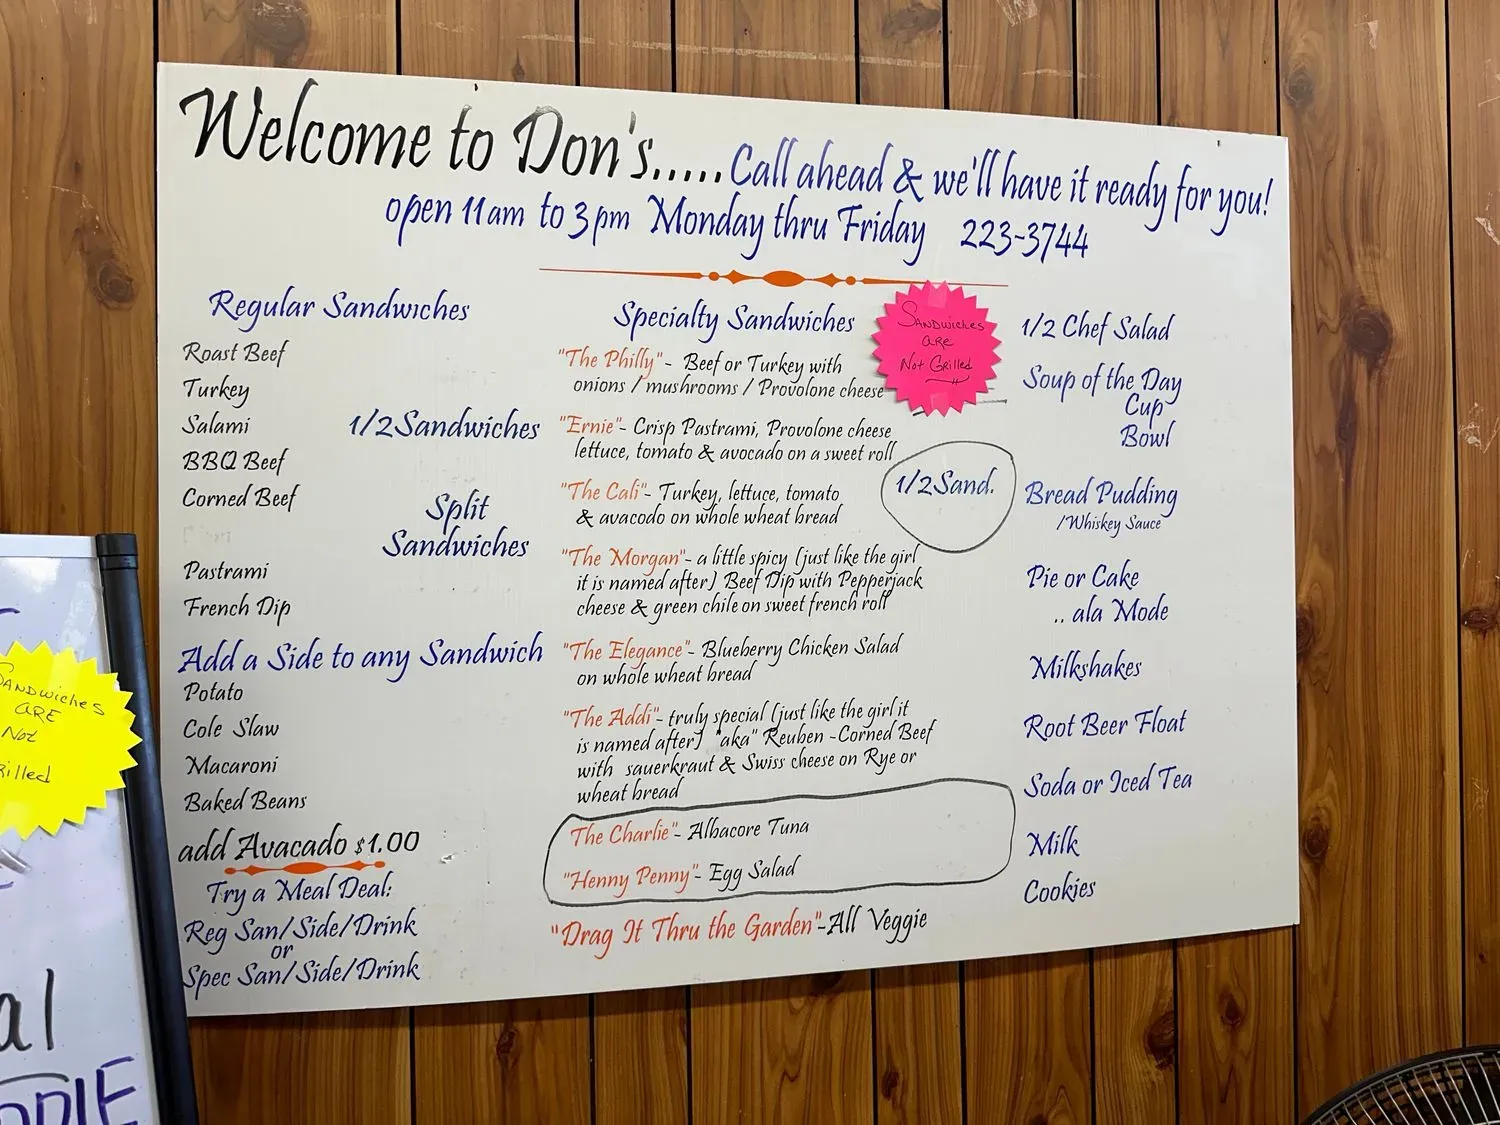 Welcome to Don's.....Call ahead & we'll have it ready for you!
open 11am to 3pm Monday thru Friday 223-3744
Regular Sandwiches
Roast Beef
Turkey
Salami
BBQ Beef
Corned Beef
Pastrami
French Dip
1/2 Sandwiches
Split
Sandwiches
Add a Side to any Sandwich
Potato
Cole Slaw
Macaroni
Baked Beans
add Avacado $1.00
Try a Meal Deal:
Reg San/Side/Drink
or
Spec San/Side/Drink
Specialty Sandwiches
"The Philly"- Beef or Turkey with
onions / mushrooms / Provolone cheese
"Ernie"- Crisp Pastrami, Provolone cheese
lettuce, tomato & avocado on a sweet roll
"The Cali"- Turkey, lettuce, tomato
& avacodo on whole wheat bread
"The Morgan"- a little spicy (just like the girl
it is named after) Beef Dip with Pepperjack
cheese & green chile on sweet french roll
"The Elegance"- Blueberry Chicken Salad
on whole wheat bread
"The Addi"- truly special (just like the girl it
is named after) "aka" Reuben -Corned Beef
with sauerkraut & Swiss cheese on Rye or
wheat bread
The Charlie"- Albacore Tuna
"Henny Penny"- Egg Salad
"Drag It Thru the Garden"-All Veggie
Sandwiches
are
Not Grilled
1/2 Sand.
1/2 Chef Salad
Soup of the Day
Cup
Bowl
Bread Pudding
/Whiskey Sauce
Pie or Cake
.. ala Mode
Milkshakes
Root Beer Float
Soda or Iced Tea
Milk
Cookies
Sandwiches
ARE
Not
rilled
al
DDLE